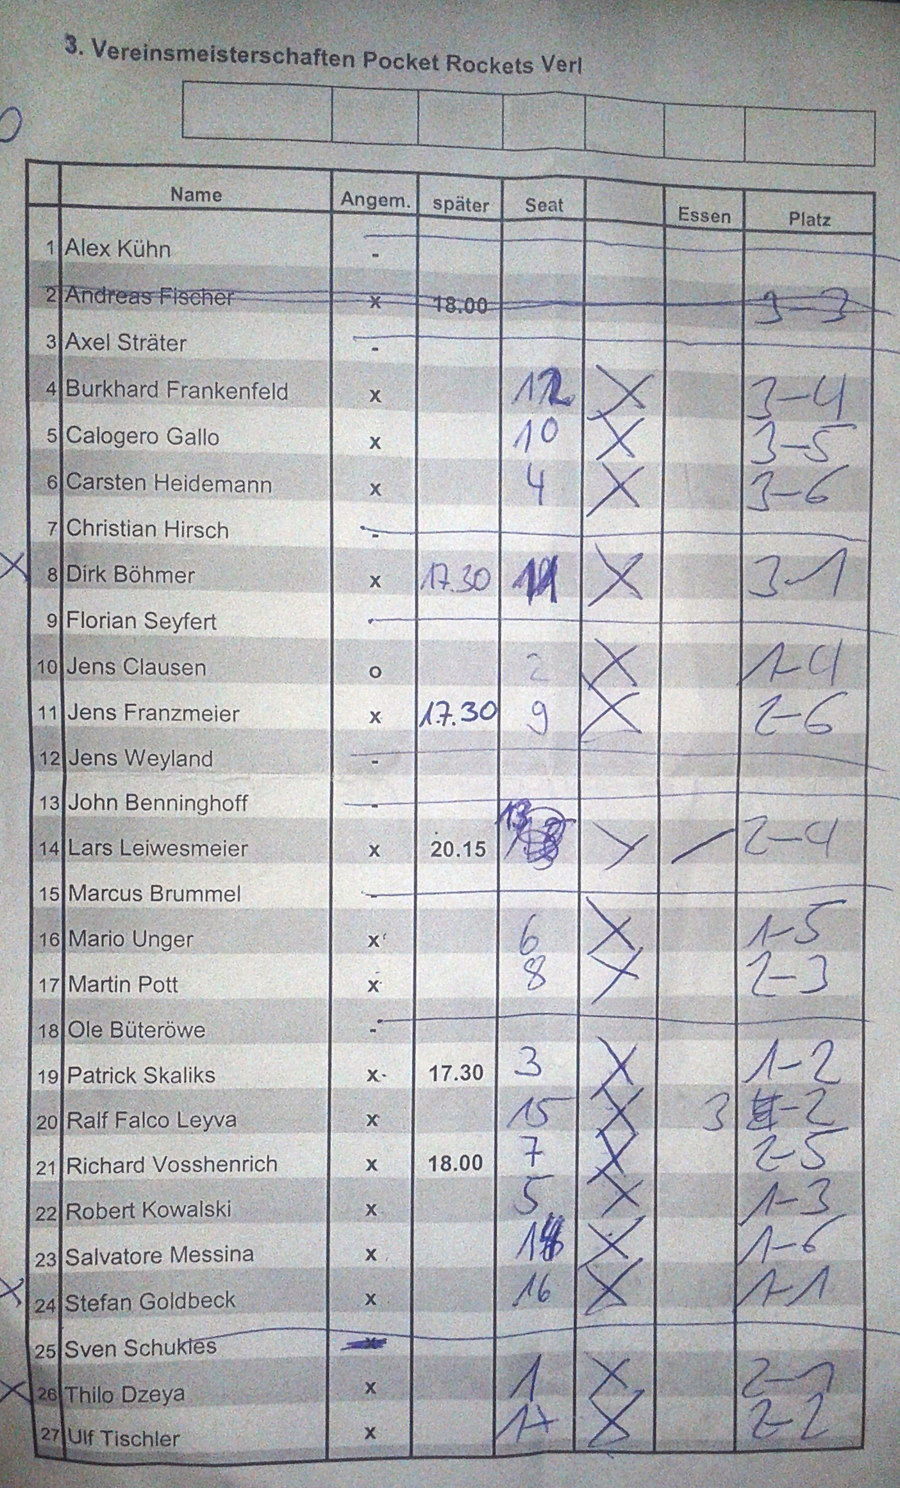 3. Vereinsmeisterschaften Pocket Rockets Verl
Name Angem. später Seat Essen Platz
1 Alex Kühn -
2 Andreas Fischer x 18.00 3-3
3 Axel Sträter -
4 Burkhard Frankenfeld x 12 X 3-4
5 Calogero Gallo x 10 X 3-5
6 Carsten Heidemann x 4 X 3-6
7 Christian Hirsch -
X 8 Dirk Böhmer x 17.30 11 X 3-1
9 Florian Seyfert -
10 Jens Clausen o 2 X 1-4
11 Jens Franzmeier x 17.30 9 X 2-6
12 Jens Weyland -
13 John Benninghoff -
14 Lars Leiwesmeier x 20.15 13 X 2-4
15 Marcus Brummel -
16 Mario Unger x 6 X 1-5
17 Martin Pott x 8 X 2-3
18 Ole Büteröwe -
19 Patrick Skaliks x 17.30 3 X 1-2
20 Ralf Falco Leyva x 15 X 3 -2
21 Richard Vosshenrich x 18.00 7 X 2-5
22 Robert Kowalski x 5 X 1-3
23 Salvatore Messina x X 1-6
X 24 Stefan Goldbeck x 16 X 1-1
25 Sven Schukies x
X 26 Thilo Dzeya x 1 X 2-1
27 Ulf Tischler x 17 X 2-2